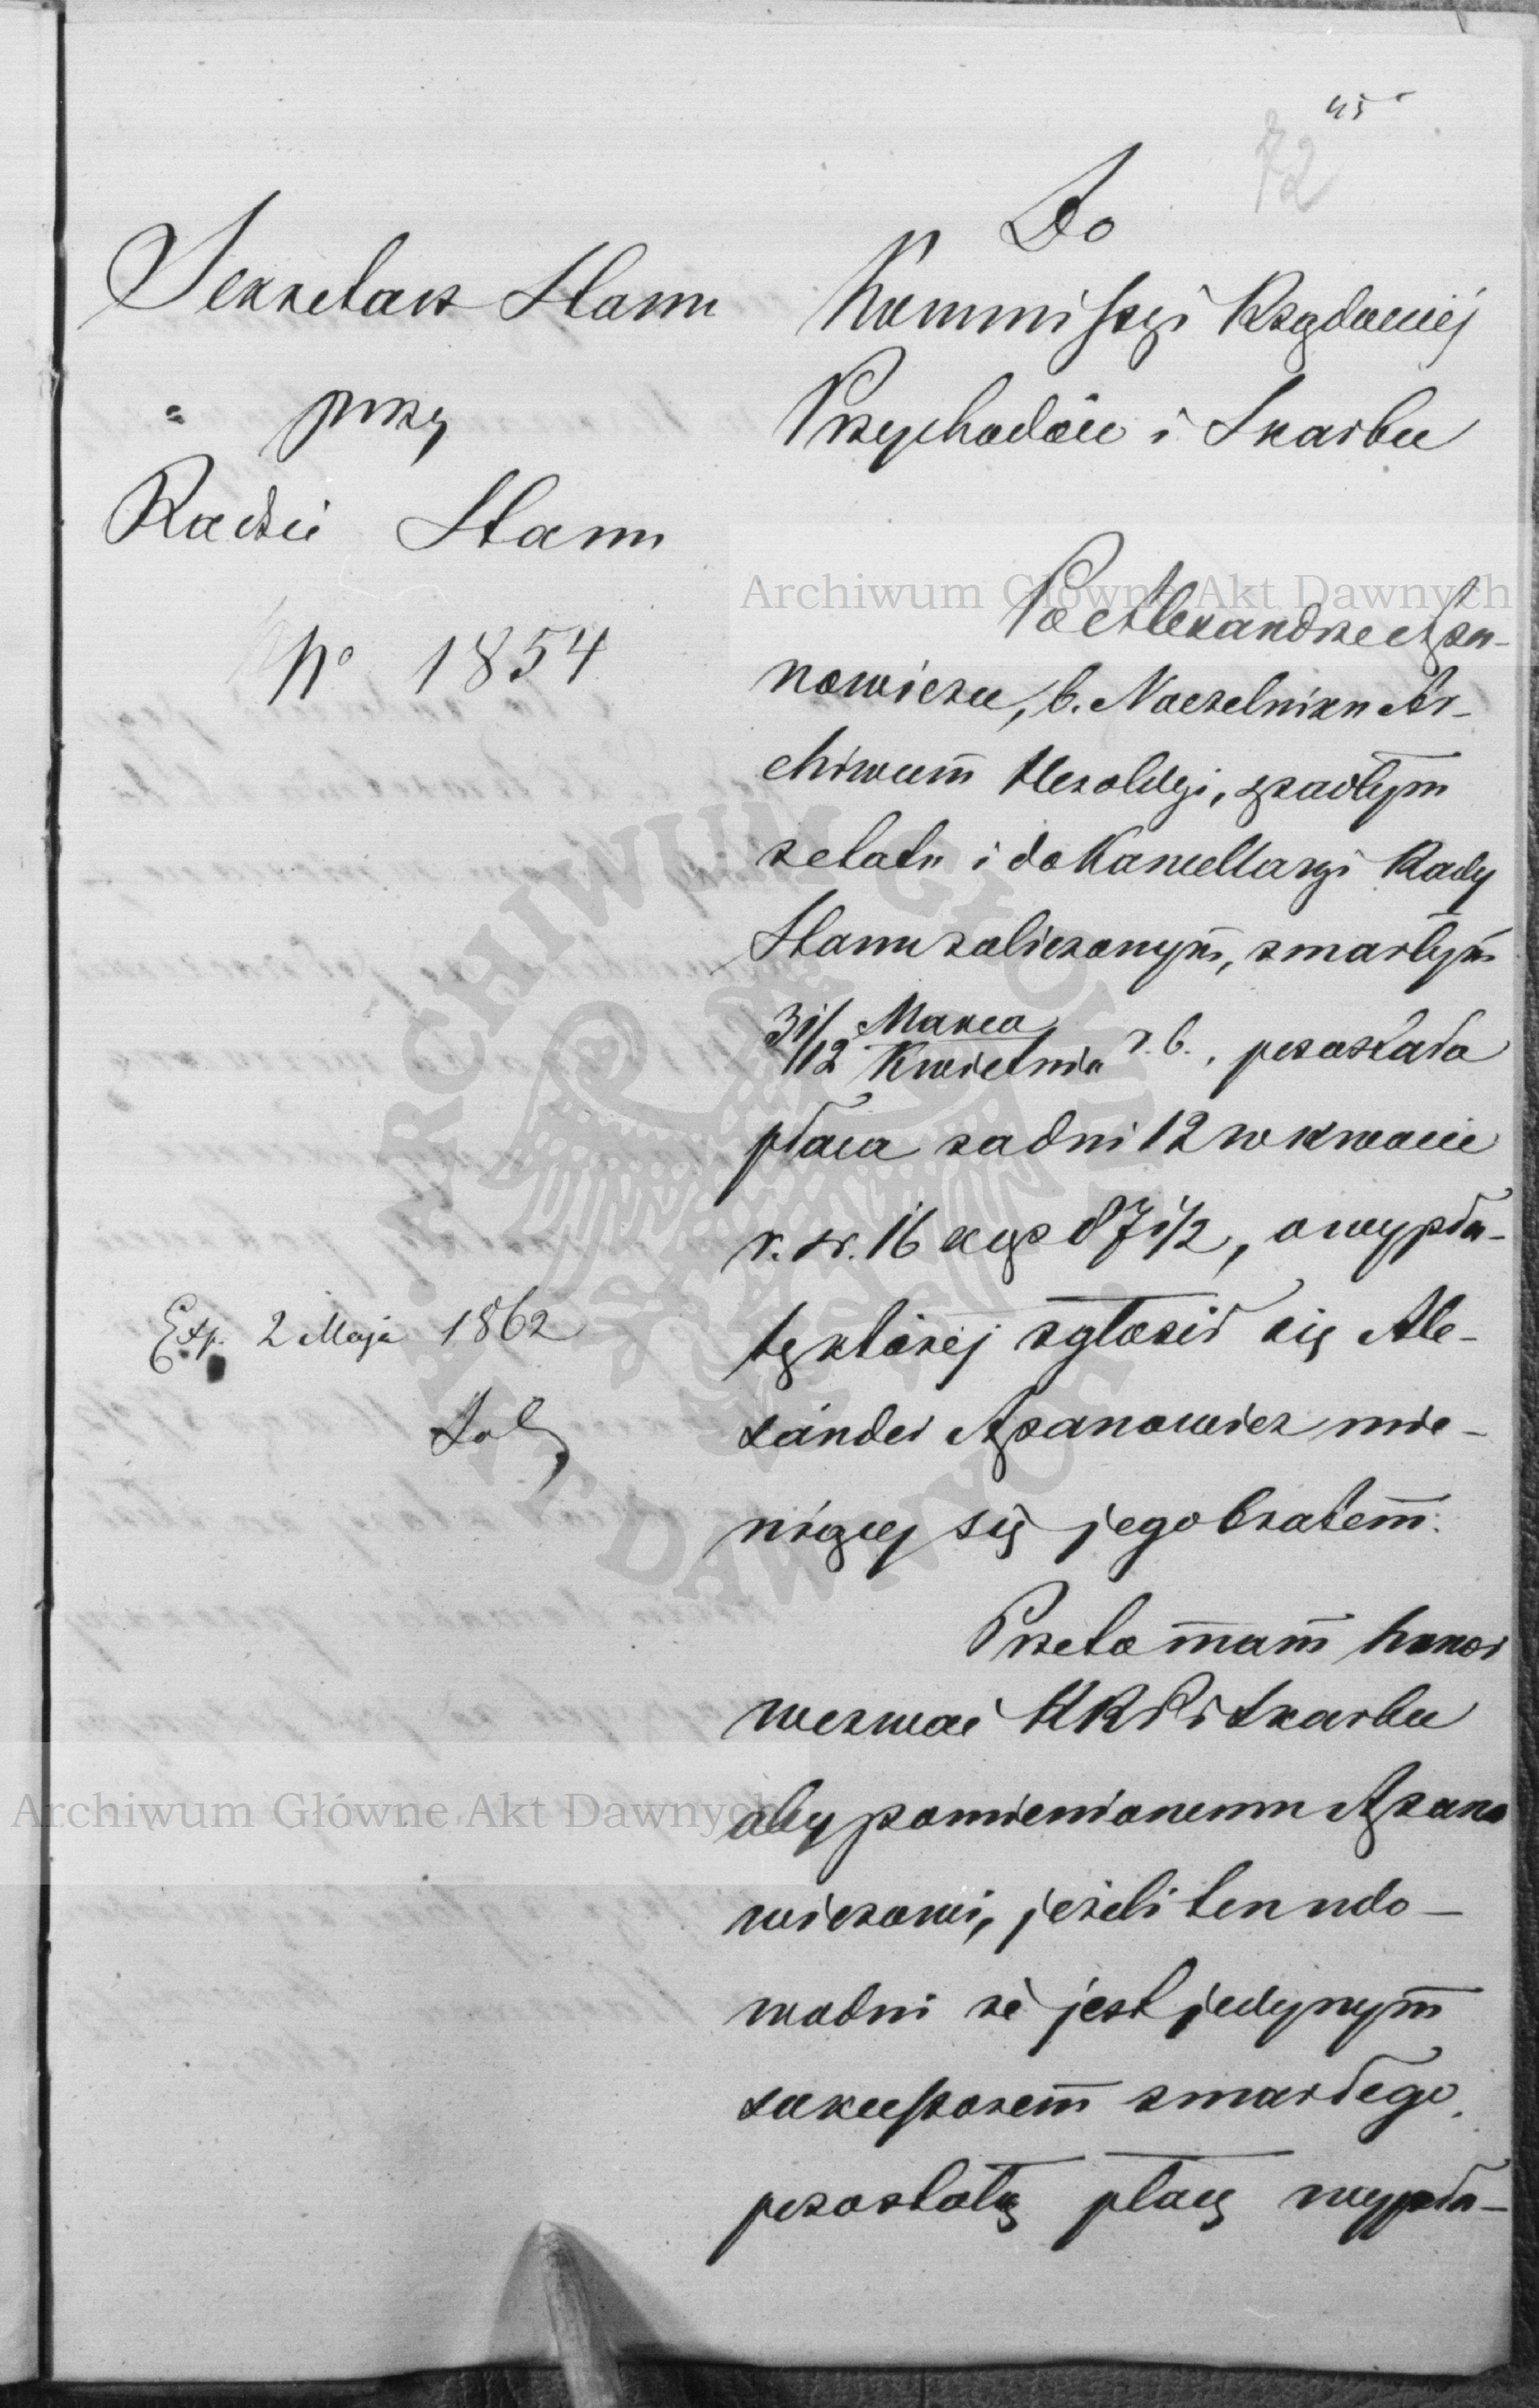 45
72
Sekretarz Stanu
przy
Radzie Stanu
No 1854
Exp. 2 Maja 1862
Do
Kommissyi Rządowej
Przychodów i Skarbu
Po Alexandrze Apa-
nowiczu, b. Naczelniku Ar-
chiwum Heroldyi, spadłym
z etatu i do Kancellaryi Rady
Stanu zaliczonym, zmarłym
31/12 Marca/Kwietnia r. b., pozostała
płaca za dni 12 w kwocie
r. sr. 16 kop 87 1/2, o wypła-
tę której zgłosił się Ale-
xander Apanowicz mie-
niący się jego bratem.
Przeto mam honor
wezwać KRP i Skarbu
aby pomienionemu Apano
wiczowi, jeżeli ten udo-
wodni że jest jedynym
sukcessorem zmarłego,
pozostałą płacę wypła-
Archiwum Główne Akt Dawnych
Archiwum Główne Akt Dawnych
ARCHIWUM GŁÓWNE AKT DAWNYCH